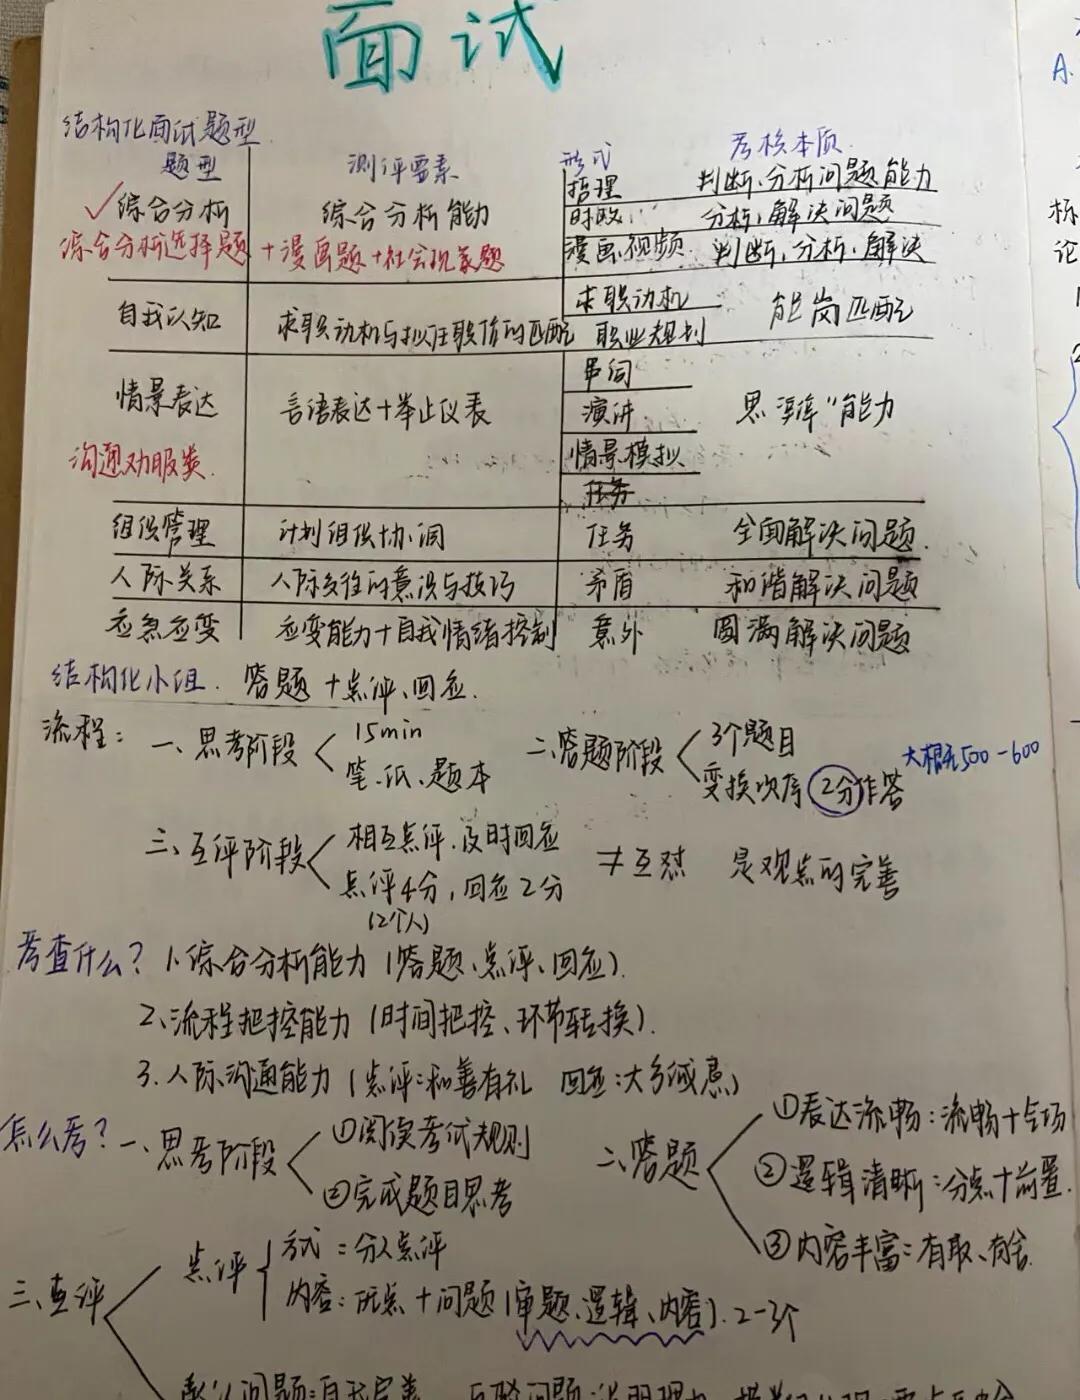 面试
结构化面试题型
题型 测评要素 形式 考核本质
✓综合分析 综合分析能力 哲理 判断、分析问题能力
时政 分析、解决问题
综合分析选择题 + 漫画题 + 社会现象题 漫画、视频 判断、分析、解决
自我认知 求职动机与拟任职位的匹配 求职动机 能岗匹配
职业规划
情景表达 言语表达+举止仪表 串词 思辨"能力
演讲
沟通劝服类 情景模拟
任务
组织管理 计划组织协调 任务 全面解决问题.
人际关系 人际交往的意识与技巧 矛盾 和谐解决问题
应急应变 应变能力+自我情绪控制 意外 圆满解决问题
结构化小组. 答题+点评、回应.
流程: 一、思考阶段 15min 二、答题阶段 3个题目
笔、纸、题本 变换次序 2分作答 大概500-600
三、互评阶段 相互点评.及时回应 ≠互怼 是观点的完善
点评4分,回应2分
(2个人)
考查什么? 1.综合分析能力(答题、点评、回应).
2.流程把控能力(时间把控、环节转换).
3.人际沟通能力(点评:和善有礼 回应:大多诚恳)
怎么考? 一、思考阶段 ①阅读考试规则 二、答题 ①表达流畅:流畅+气场
②完成题目思考 ②逻辑清晰:分点+前置.
③内容丰富:有取、有舍.
三、互评 点评 方式:分人点评
内容:优点+问题(审题、逻辑、内容).2-3个
承认问题:自我完善 反驳问题:说明理由
A.
标
论